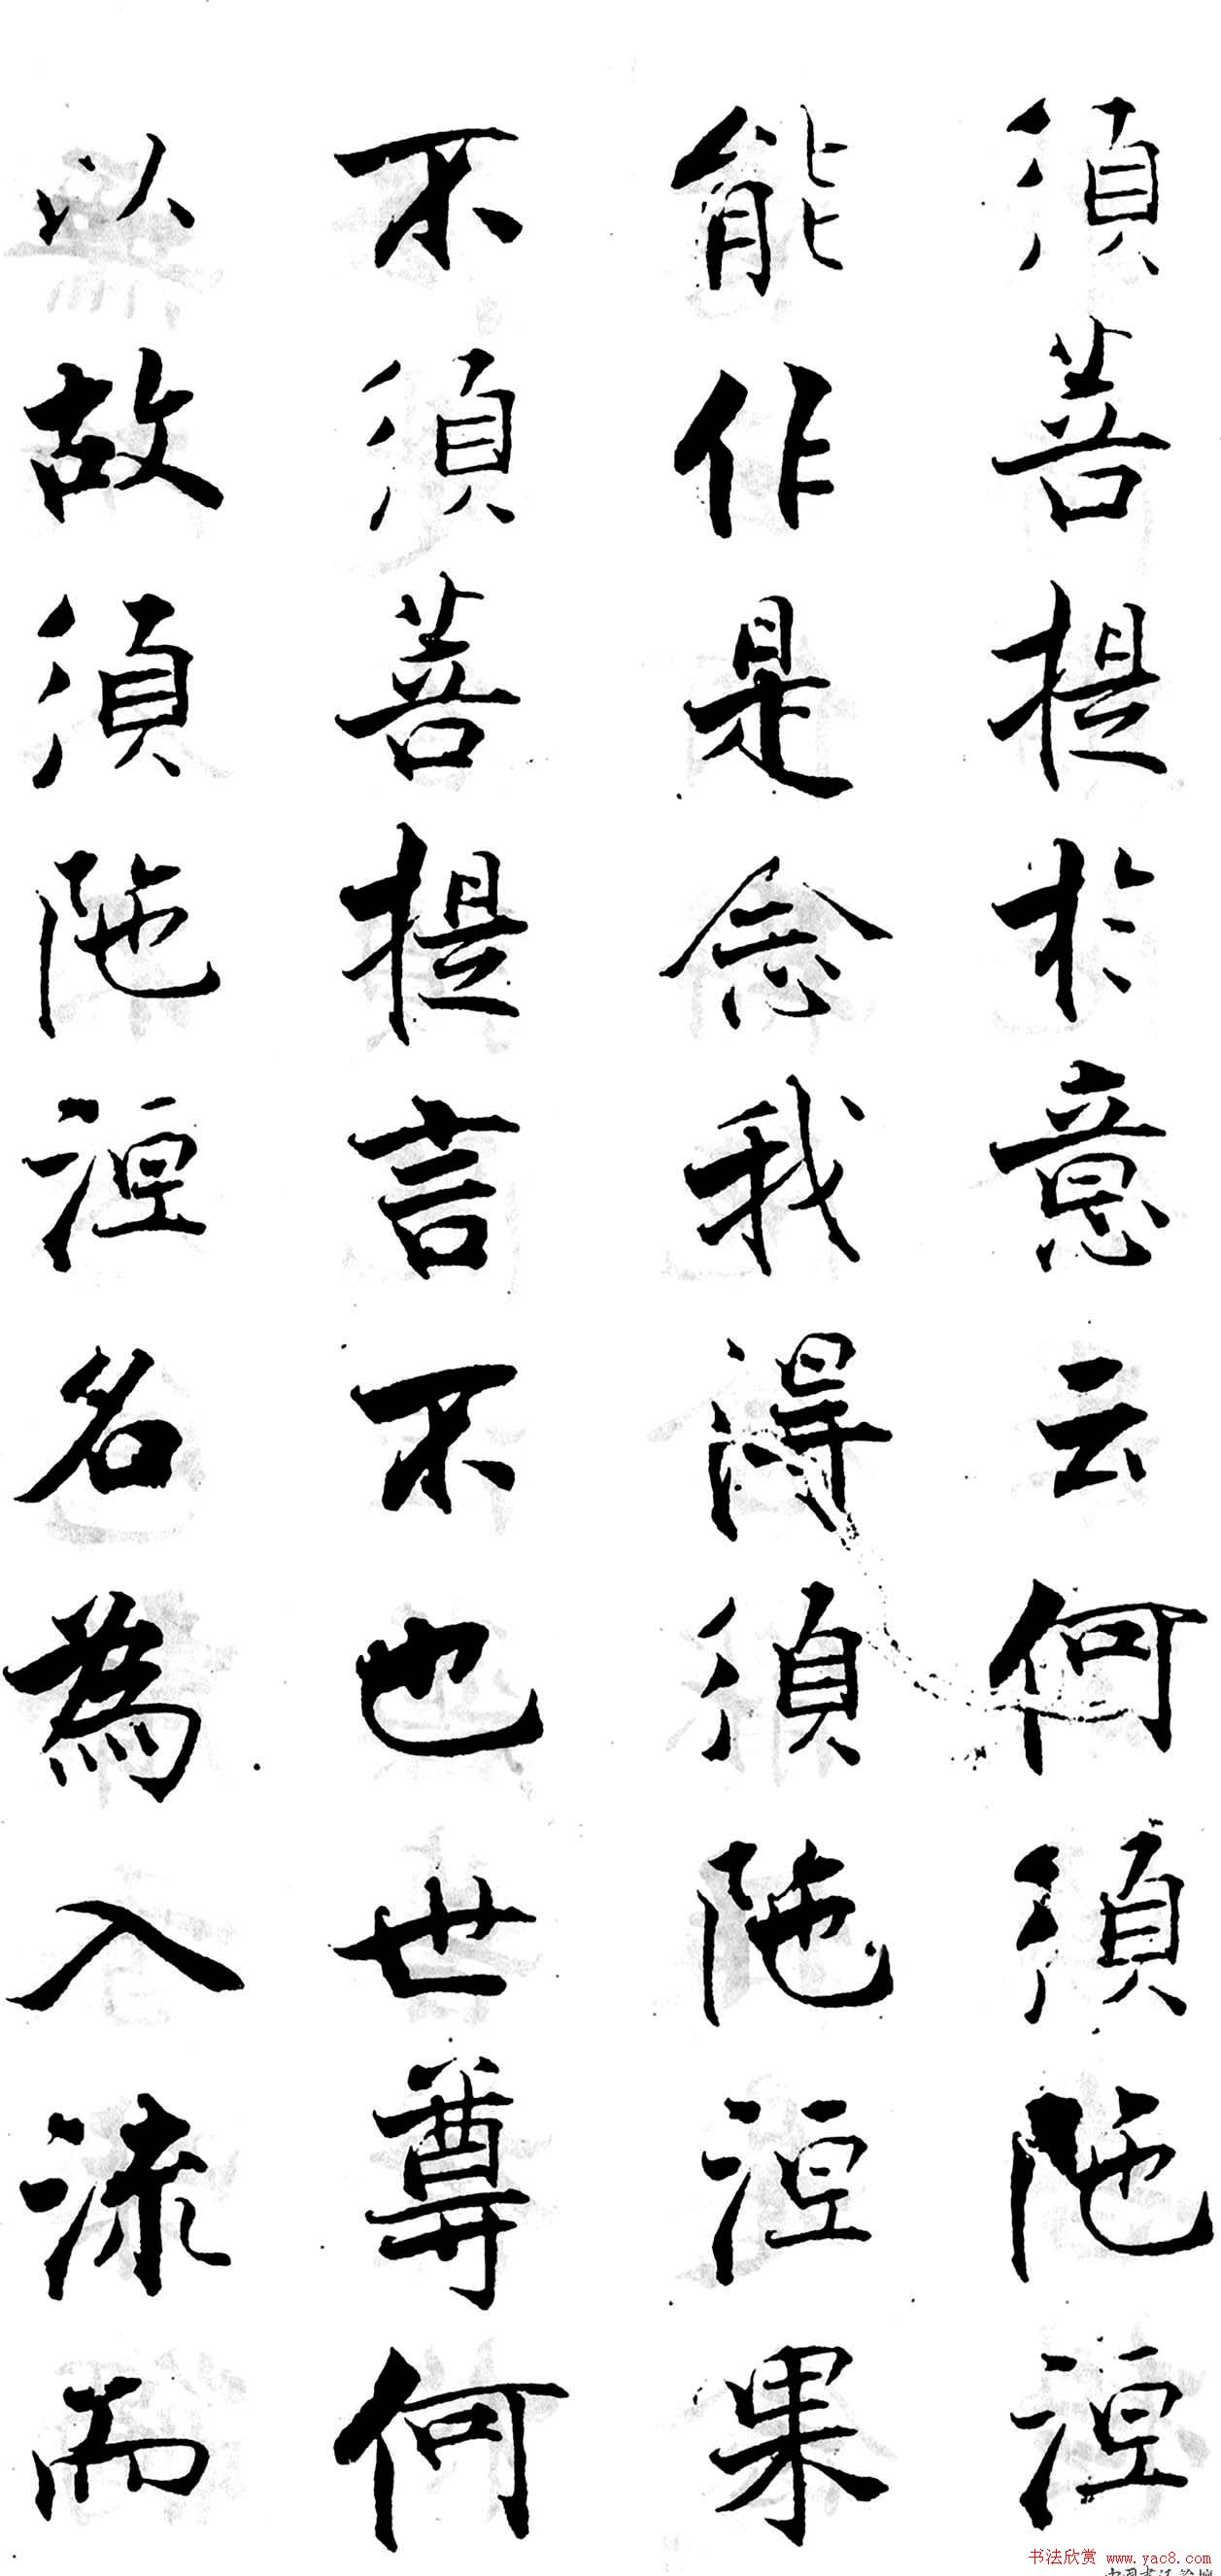 須菩提於意云何須陁洹
能作是念我得須陁洹果
不須菩提言不也世尊何
以故須陁洹名為入流而
书法欣赏 www.yac8.com